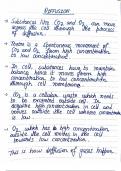 Diffusion
Substances like CO2 and O2 can move
across the cell through the process
of diffusion.
There is a spontaneous movement of
CO2 and O2 from high concentration
to low concentration.
In cell, substances have to maintain
balance hence it moves from high
concentration to low concentration
through cell membrane.
CO2 is a cellular waste which needs
to be excreted outside cell. It
acquires high concentration in cell and
moves outside the cell where concentration
is low.
O2 which has a high concentration
outside the cell moves to cell
towards low concentration.
This is how diffusion of gases happen.